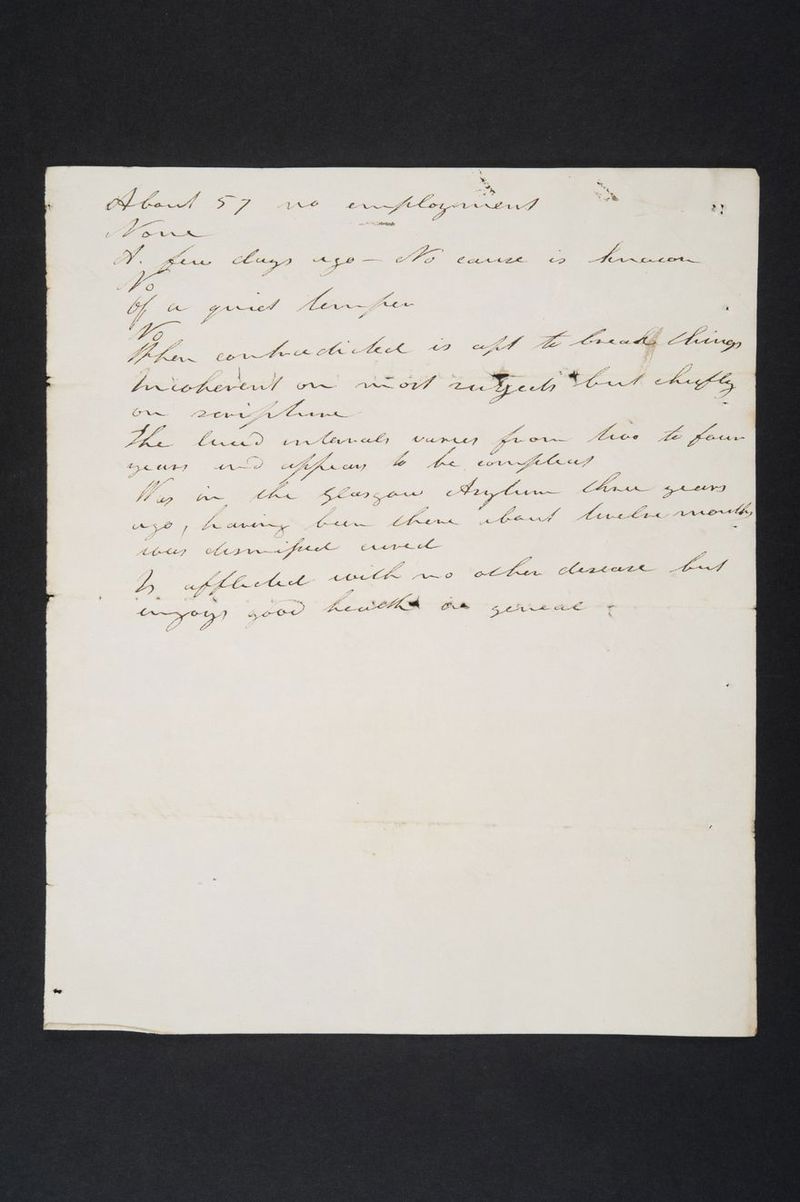 About 57 no employment
None
A. few days ago — No cause is known
No
Of a quiet temper
No
When contradicted is apt to break things
Incoherent on most subjects but chiefly
on scripture
The lucid intervals varies from two to four
years and appears to be compleat
Was in the Glasgow Asylum three years
ago, having been there about twelve months
was dismissed cured
Is afflicted with no other disease but
enjoys good health in general